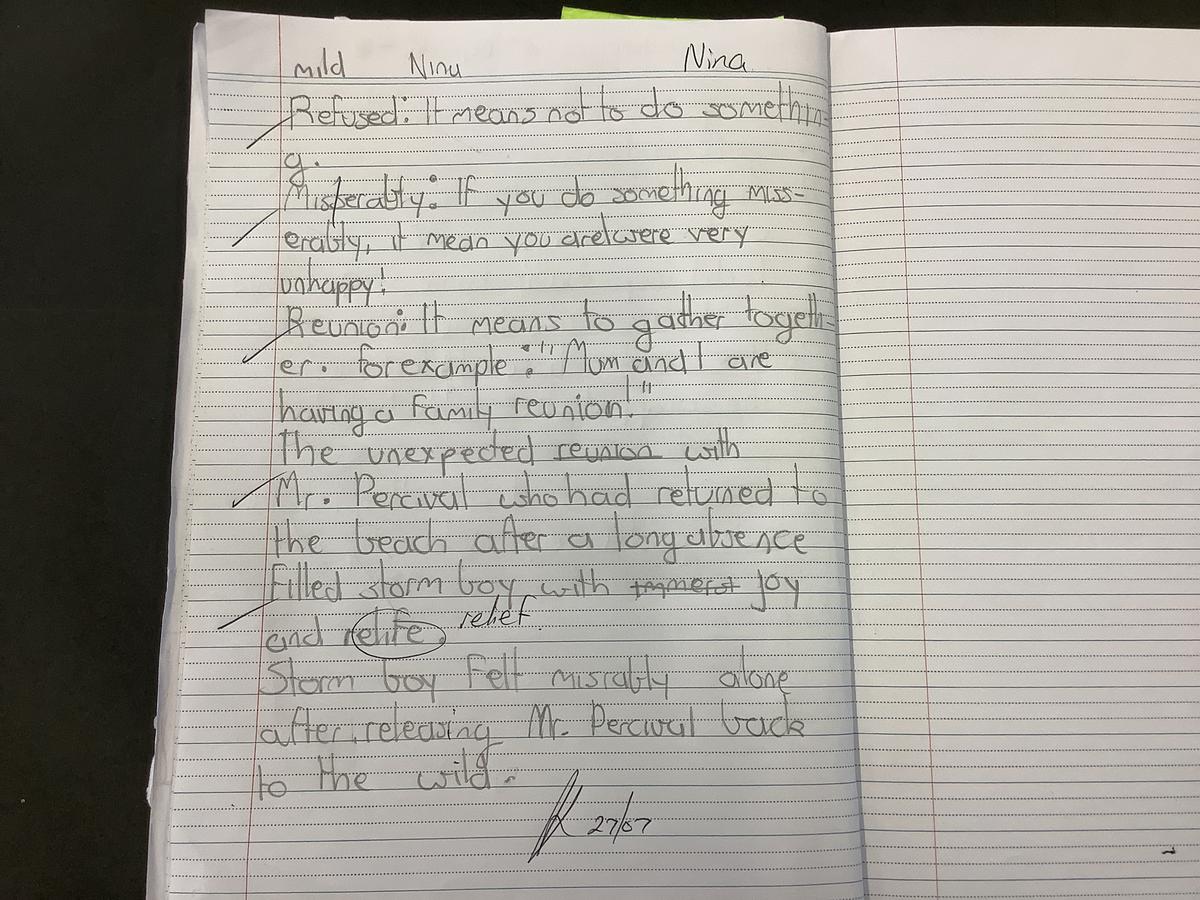 mild Ninu Nina
Refused: It means not to do somethin-
g.
Misferably: If you do something miss-
erably, it mean you are/were very
unhappy!
Reunion: It means to gather togeth-
er. for example: "Mum and I are
having a family reunion!"
The unexpected reunion with
Mr. Percival who had returned to
the beach after a long absence
filled storm boy with immerst joy
and relife. relief
Storm boy felt misrably alone
after releasing Mr. Percival back
to the wild.
27/07